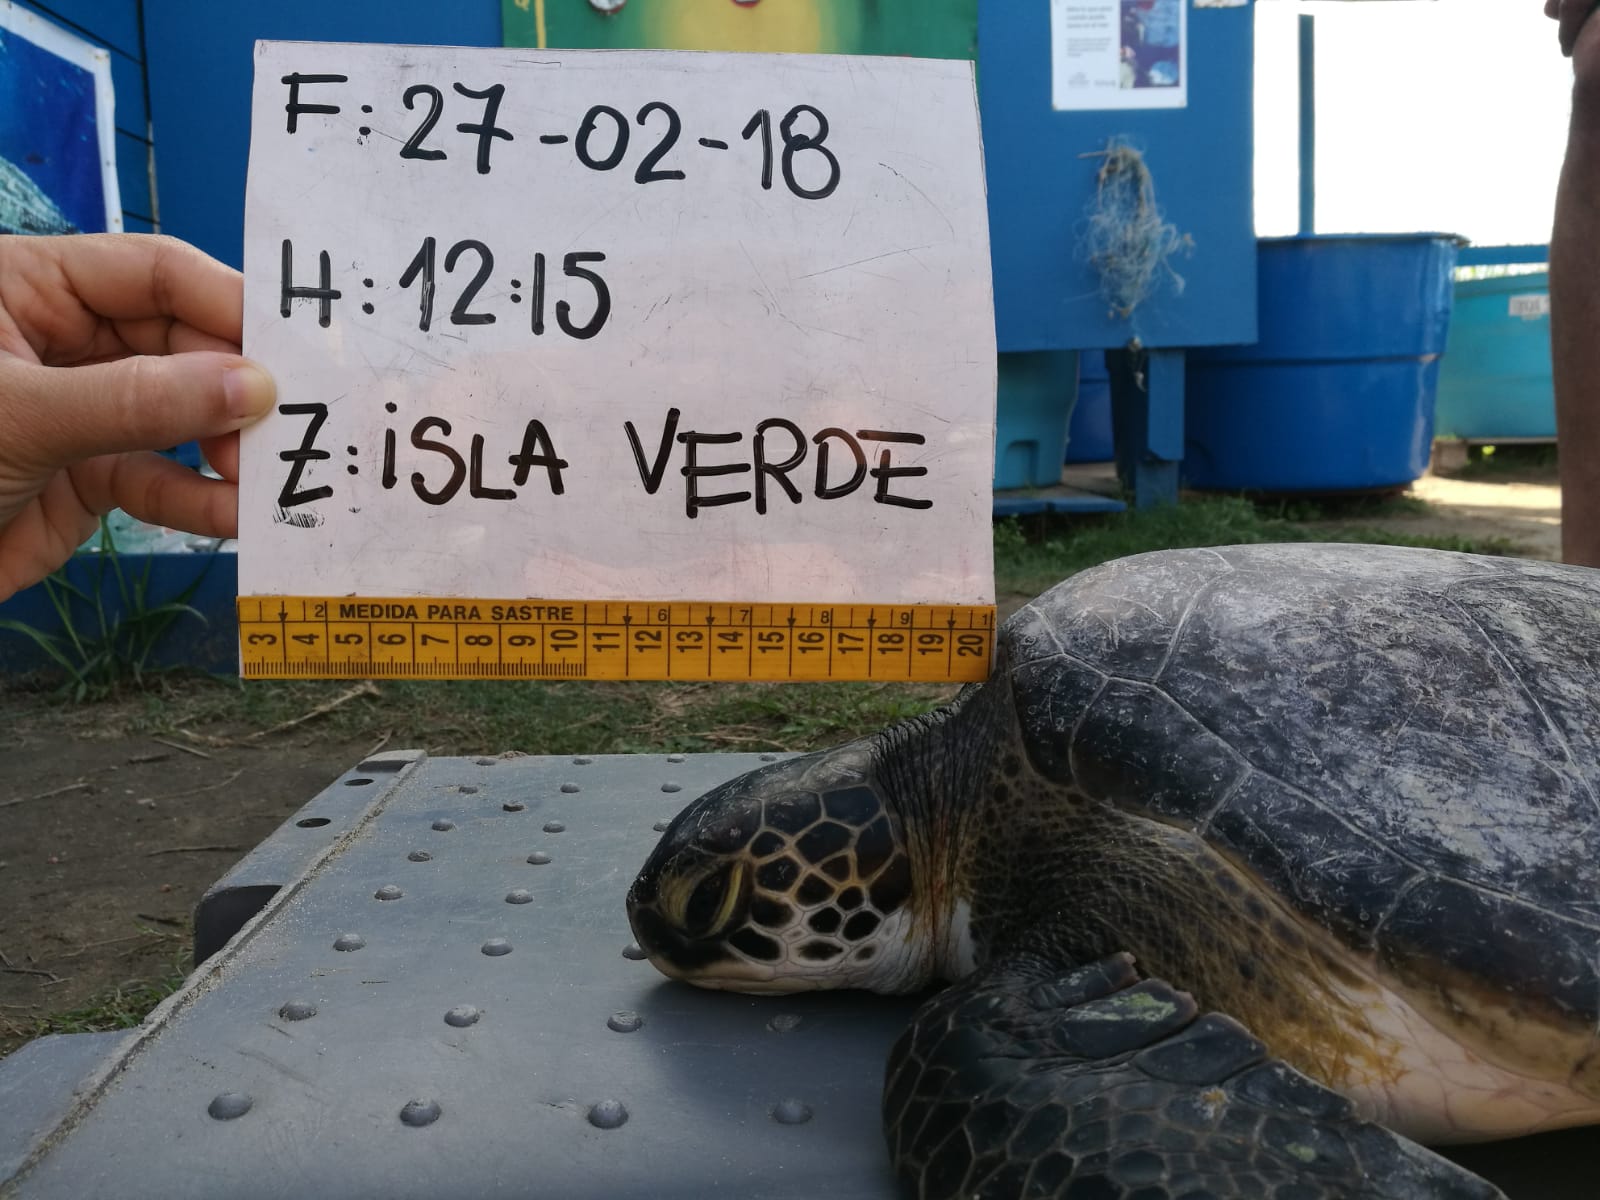 F: 27-02-18
H: 12:15
Z: iSLA VERDE
2 MEDIDA PARA SASTRE 6 7 8 9 1
3 4 5 6 7 8 9 10 11 12 13 14 15 16 17 18 19 20